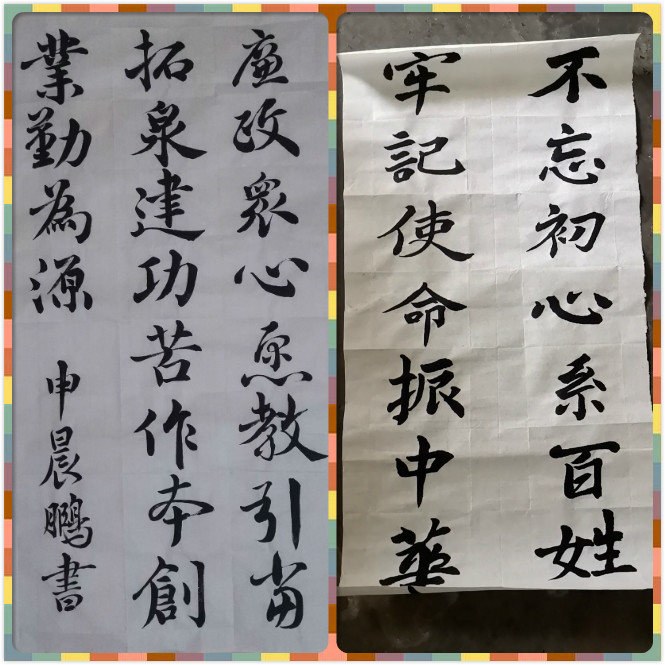 廉政眾心愿教引當
拓泉建功苦作本創
業勤為源 申晨鵬書
不忘初心系百姓
牢記使命振中華